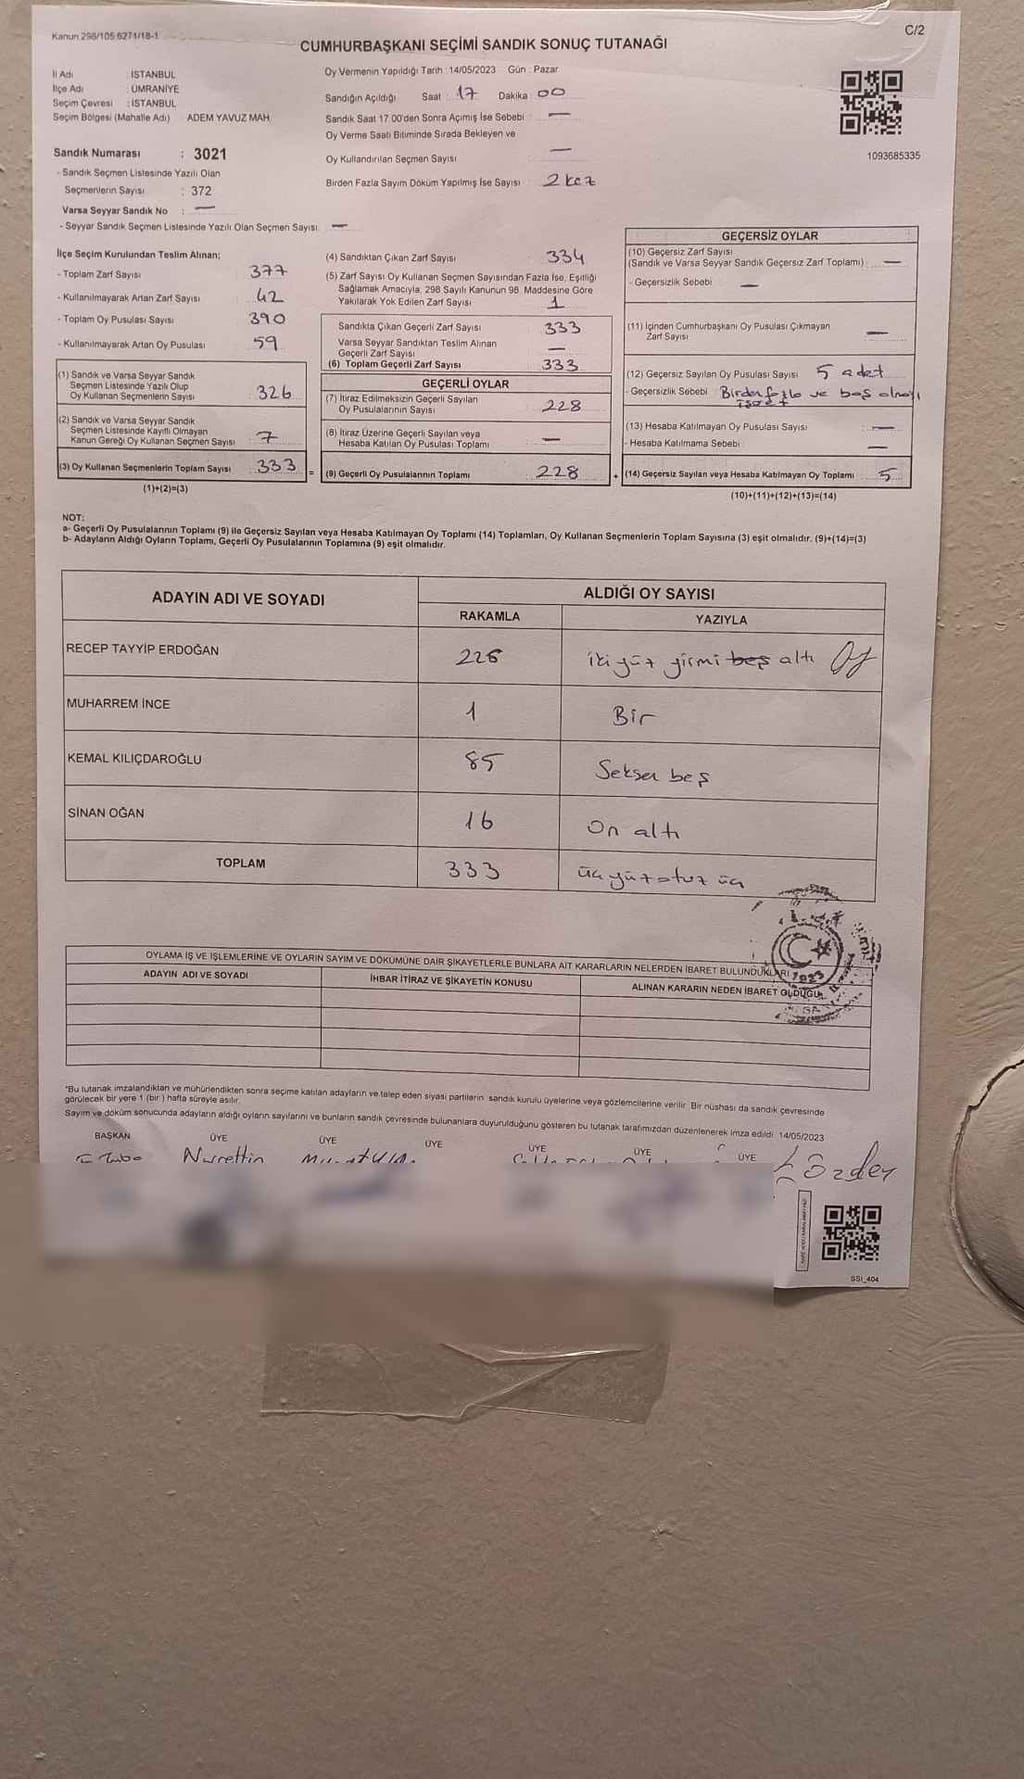 Kanun 298/105 6271/18-1
C/2
CUMHURBAŞKANI SEÇİMİ SANDIK SONUÇ TUTANAĞI
İl Adı : İSTANBUL
İlçe Adı : ÜMRANİYE
Seçim Çevresi : İSTANBUL
Seçim Bölgesi (Mahalle Adı) ADEM YAVUZ MAH.
Sandık Numarası : 3021
- Sandık Seçmen Listesinde Yazılı Olan
Seçmenlerin Sayısı : 372
Varsa Seyyar Sandık No : —
- Seyyar Sandık Seçmen Listesinde Yazılı Olan Seçmen Sayısı : —
Oy Vermenin Yapıldığı Tarih : 14/05/2023 Gün : Pazar
Sandığın Açıldığı Saat : 17 Dakika : 00
Sandık Saat 17.00'den Sonra Açılmış İse Sebebi : —
Oy Verme Saati Bitiminde Sırada Bekleyen ve
Oy Kullandırılan Seçmen Sayısı —
Birden Fazla Sayım Döküm Yapılmış İse Sayısı : 2 kez
1093685335
İlçe Seçim Kurulundan Teslim Alınan;
- Toplam Zarf Sayısı 377
- Kullanılmayarak Artan Zarf Sayısı 42
- Toplam Oy Pusulası Sayısı 390
- Kullanılmayarak Artan Oy Pusulası 59
(1) Sandık ve Varsa Seyyar Sandık
Seçmen Listesinde Yazılı Olup
Oy Kullanan Seçmenlerin Sayısı 326
(2) Sandık ve Varsa Seyyar Sandık
Seçmen Listesinde Kayıtlı Olmayan
Kanun Gereği Oy Kullanan Seçmen Sayısı 7
(3) Oy Kullanan Seçmenlerin Toplam Sayısı 333 =
(1)+(2)=(3)
(4) Sandıktan Çıkan Zarf Sayısı 334
(5) Zarf Sayısı Oy Kullanan Seçmen Sayısından Fazla İse, Eşitliği
Sağlamak Amacıyla, 298 Sayılı Kanunun 98. Maddesine Göre
Yakılarak Yok Edilen Zarf Sayısı 1
Sandıkta Çıkan Geçerli Zarf Sayısı 333
Varsa Seyyar Sandıktan Teslim Alınan
Geçerli Zarf Sayısı —
(6) Toplam Geçerli Zarf Sayısı 333
GEÇERLİ OYLAR
(7) İtiraz Edilmeksizin Geçerli Sayılan
Oy Pusulalarının Sayısı 228
(8) İtiraz Üzerine Geçerli Sayılan veya
Hesaba Katılan Oy Pusulası Toplamı —
(9) Geçerli Oy Pusulalarının Toplamı 228 +
GEÇERSİZ OYLAR
(10) Geçersiz Zarf Sayısı
(Sandık ve Varsa Seyyar Sandık Geçersiz Zarf Toplamı) : —
- Geçersizlik Sebebi : —
(11) İçinden Cumhurbaşkanı Oy Pusulası Çıkmayan
Zarf Sayısı —
(12) Geçersiz Sayılan Oy Pusulası Sayısı 5 adet
- Geçersizlik Sebebi : Birden fazla ve boş olması
(13) Hesaba Katılmayan Oy Pusulası Sayısı : —
- Hesaba Katılmama Sebebi : —
(14) Geçersiz Sayılan veya Hesaba Katılmayan Oy Toplamı 5
(10)+(11)+(12)+(13)=(14)
NOT:
a- Geçerli Oy Pusulalarının Toplamı (9) ile Geçersiz Sayılan veya Hesaba Katılmayan Oy Toplamı (14) Toplamları, Oy Kullanan Seçmenlerin Toplam Sayısına (3) eşit olmalıdır. (9)+(14)=(3)
b- Adayların Aldığı Oyların Toplamı, Geçerli Oy Pusulalarının Toplamına (9) eşit olmalıdır.
ADAYIN ADI VE SOYADI
ALDIĞI OY SAYISI
RAKAMLA YAZIYLA
RECEP TAYYİP ERDOĞAN 226 iki yüz yirmi beş altı
MUHARREM İNCE 1 Bir
KEMAL KILIÇDAROĞLU 85 Seksen beş
SİNAN OĞAN 16 On altı
TOPLAM 333 üç yüz otuz üç
OYLAMA İŞ VE İŞLEMLERİNE VE OYLARIN SAYIM VE DÖKÜMÜNE DAİR ŞİKAYETLERLE BUNLARA AİT KARARLARIN NELERDEN İBARET BULUNDUKLARI
ADAYIN ADI VE SOYADI İHBAR İTİRAZ VE ŞİKAYETİN KONUSU ALINAN KARARIN NEDEN İBARET OLDUĞU
1923
*Bu tutanak imzalandıktan ve mühürlendikten sonra seçime katılan adayların ve talep eden siyasi partilerin sandık kurulu üyelerine veya gözlemcilerine verilir. Bir nüshası da sandık çevresinde
görülecek bir yere 1 (bir) hafta süreyle asılır.
Sayım ve döküm sonucunda adayların aldığı oyların sayılarını ve bunların sandık çevresinde bulunanlara duyurulduğunu gösteren bu tutanak tarafımızdan düzenlenerek imza edildi. 14/05/2023
BAŞKAN ÜYE ÜYE ÜYE ÜYE ÜYE ÜYE
Nurettin Özden
SSI_404